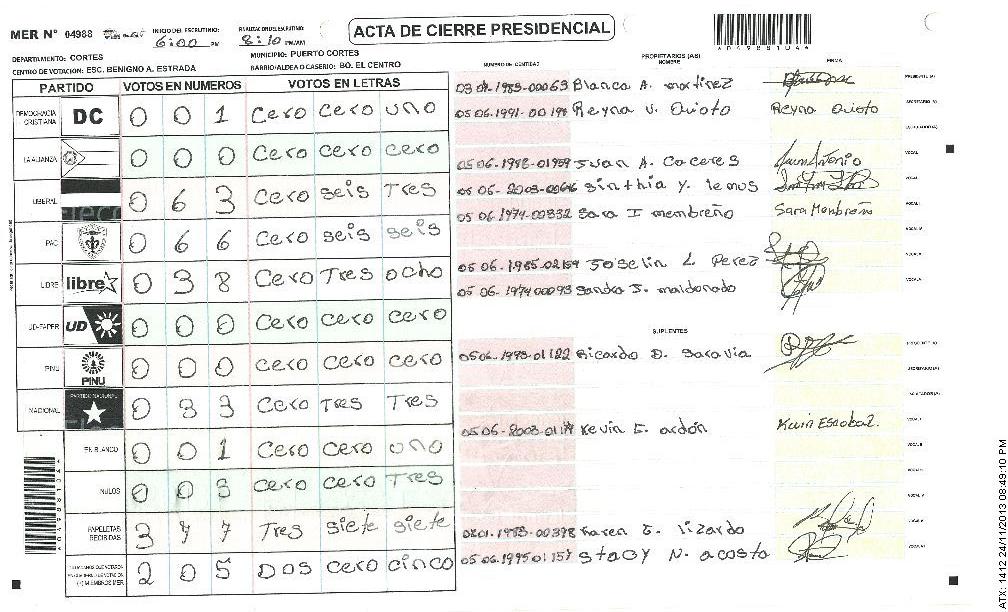 ACTA DE CIERRE PRESIDENCIAL
MER Nº 04988
INICIO DEL ESCRUTINIO: 6:00 PM
FINALIZACION DEL ESCRUTINIO: 8:10 PM/AM
A049881044
DEPARTAMENTO: CORTES
MUNICIPIO: PUERTO CORTES
CENTRO DE VOTACION: ESC. BENIGNO A. ESTRADA
BARRIO/ALDEA O CASERIO: BO. EL CENTRO
PARTIDO VOTOS EN NUMEROS VOTOS EN LETRAS
DEMOCRACIA CRISTIANA DC 0 0 1 Cero cero uno
LA ALIANZA 0 0 0 Cero cero cero
LIBERAL 0 6 3 Cero seis Tres
PAC 0 6 6 Cero seis seis
LIBRE libre 0 3 8 Cero Tres ocho
UD-FAPER UD 0 0 0 Cero cero cero
PINU PINU 0 0 0 Cero cero cero
NACIONAL PARTIDO NACIONAL 0 3 3 Cero Tres Tres
EN BLANCO 0 0 1 Cero cero uno
NULOS 0 0 3 cero cero Tres
PAPELETAS RECIBIDAS 3 7 7 Tres siete siete
(+) MIEMBROS MER 2 0 5 Dos cero cinco
NUMERO DE IDENTIDAD PROPIETARIOS (AS) NOMBRE FIRMA
Blanca A. martinez PRESIDENTE (A)
Reyna v. Ovioto Reyna Ovioto SECRETARIO (A)
ESCRUTADOR (A)
05 06-1988-01959 Juan A. Caceres Juan Antonio VOCAL
Sinthia Y. lemus VOCAL
05 06-1974-00332 Sara I membreño Sara Membreño VOCAL I
05 06-1985-02159 Joselin L. Perez
05 06-1974 00093 Sandra J. maldonado
SUPLENTES
0506-1993-01122 Ricardo D. Saravia
SECRETARIO (A)
Kevin E. ardón Kevin Escobar.
Karen E. lizardo
05 06-1995 01157 Stacy N. acosta
ATX: 1412 24/11/2013 08:49:10 PM